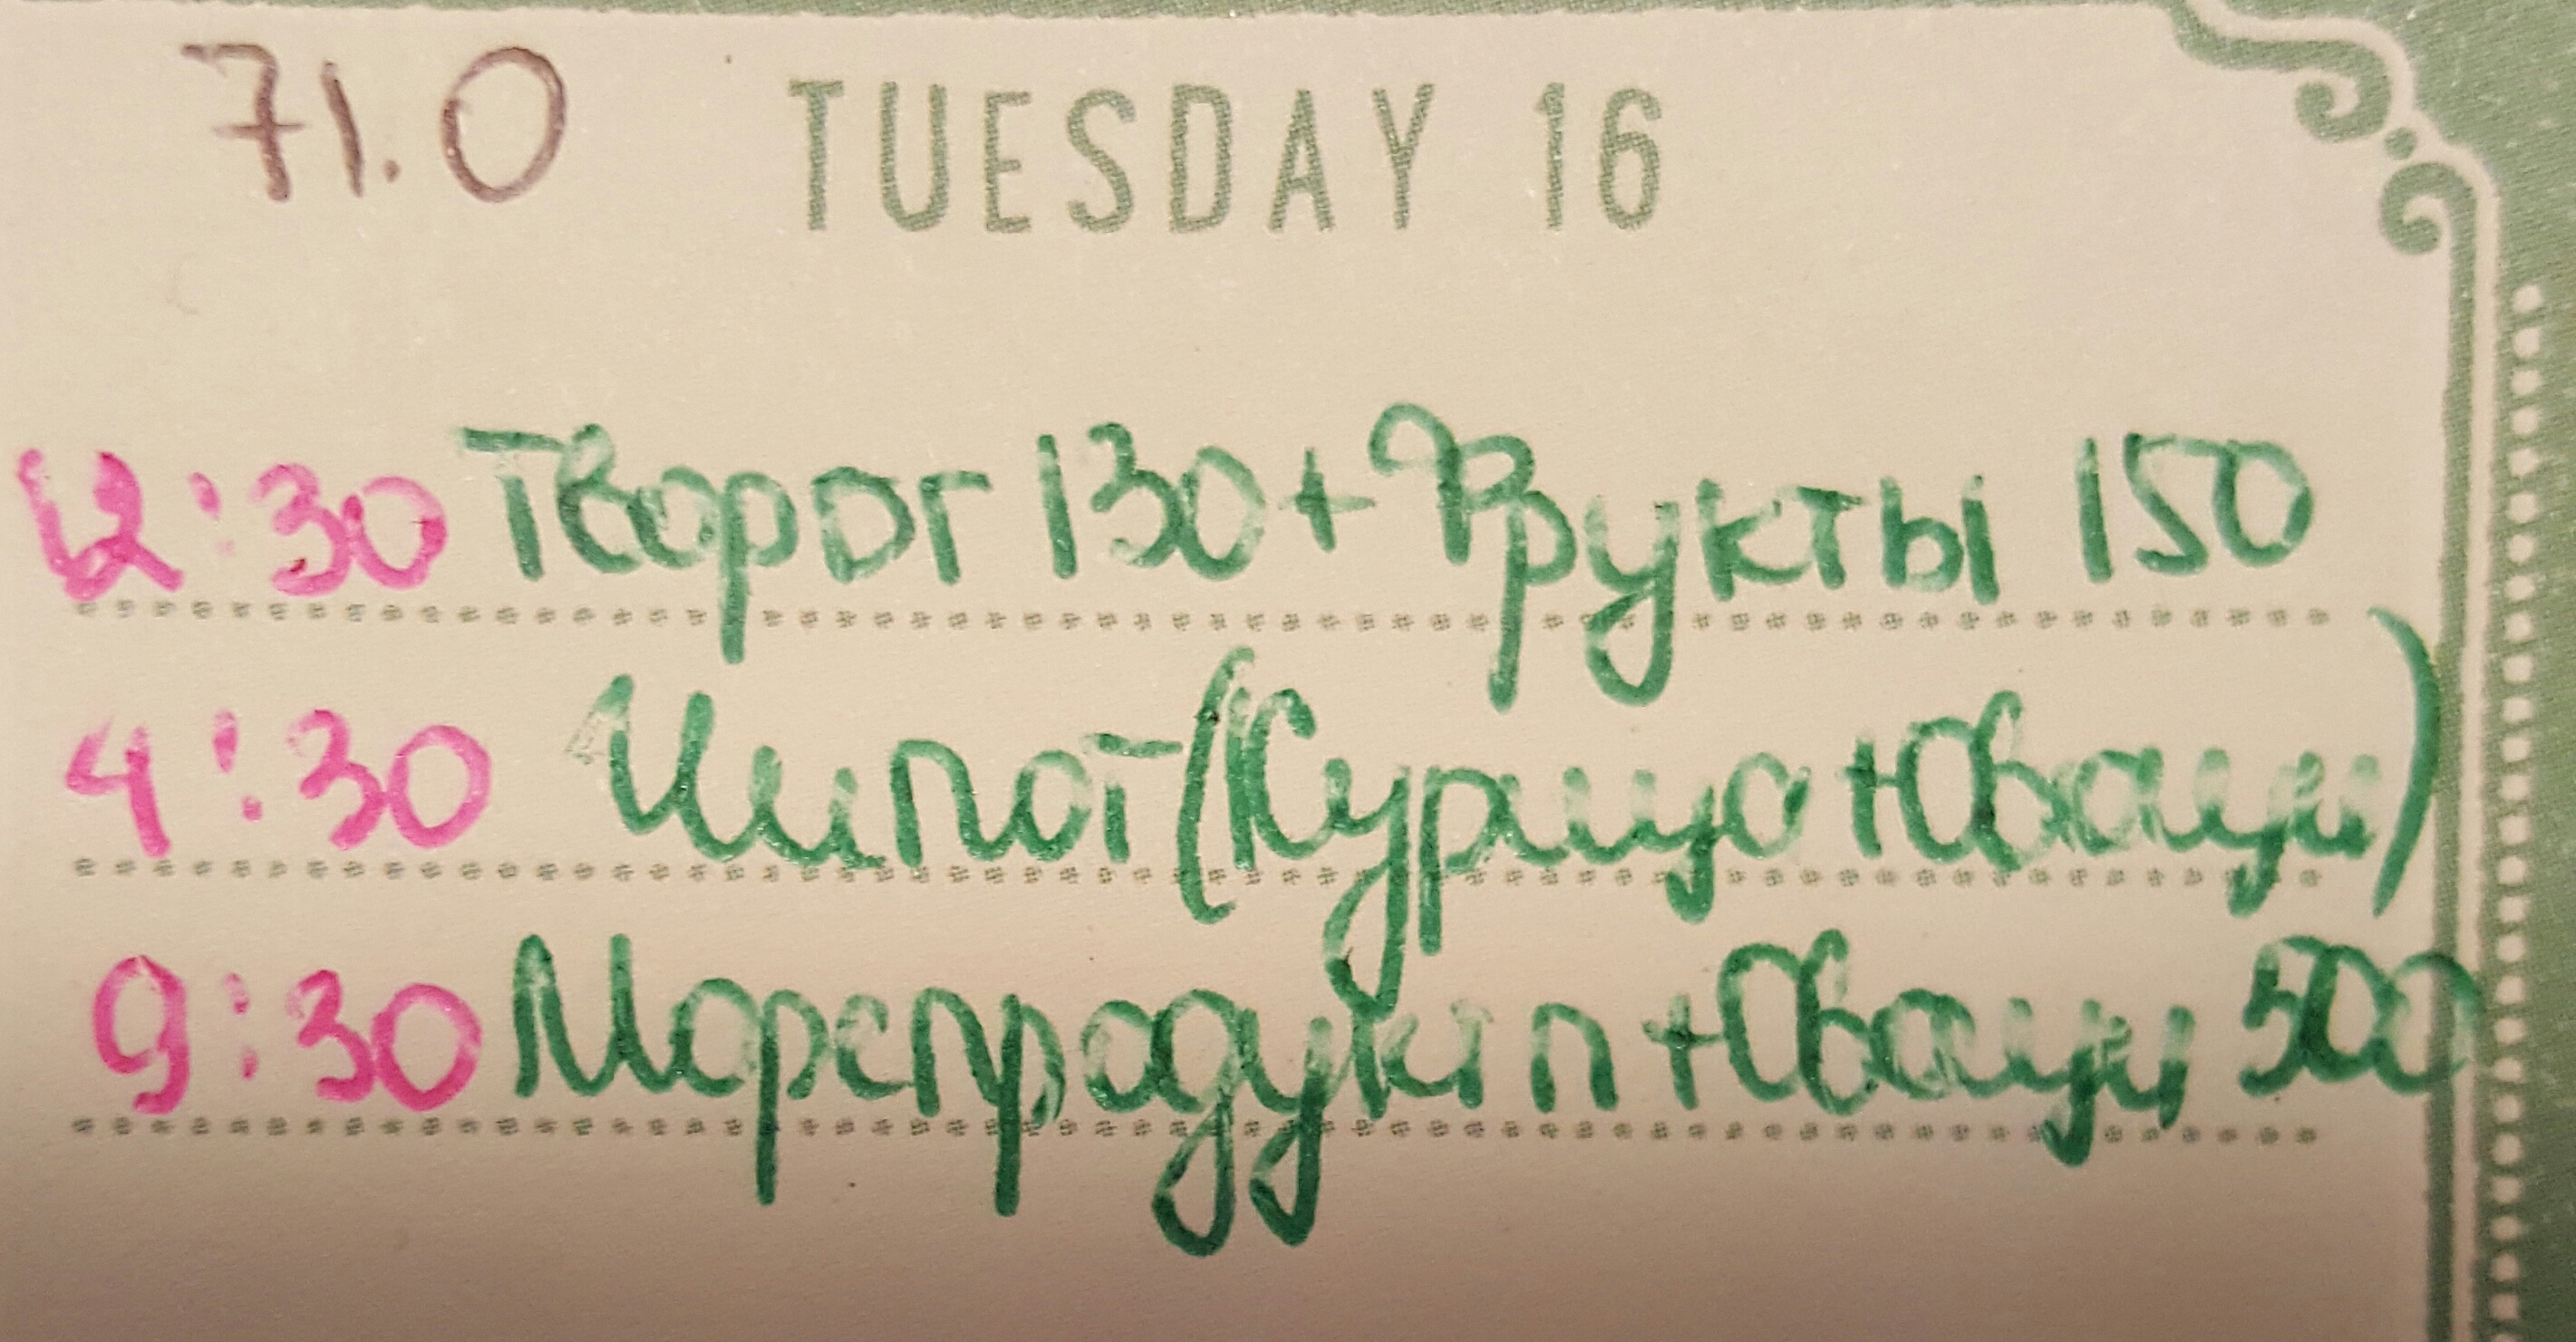 71.0 TUESDAY 16
12:30 Творог 130 + Фрукты 150
4:30 Чипот (Курица + Овощи)
9:30 Морепродукт п + Овощи 500